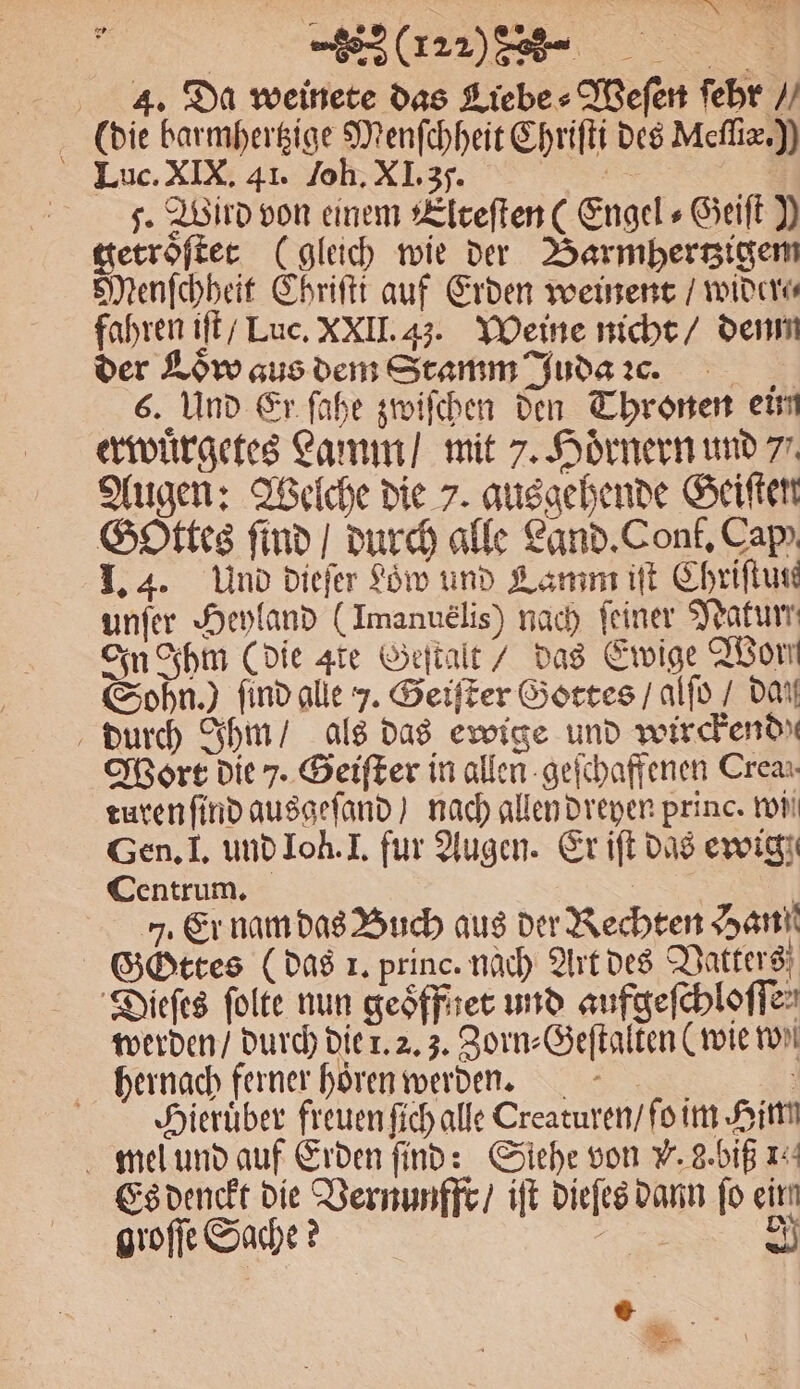 (122)
4. Da weinete das Liebe⸗Weſen ſehr /
(die barmhertzige Menſchheit Chriſti des Meſſiæ.)
Luc. XIX. 41. Joh. XI. 35.
5. Wird von einem Elteſten (Engel⸗Geiſt)
getroͤſtet (gleich wie der Barmhertzigem
Menſchheit Chriſti auf Erden weinent / wider⸗
fahren iſt / Luc. XXII. 43. Weine nicht / denn
der Loͤw aus dem Stamm Juda ꝛc.
6. Und Er ſahe zwiſchen den Thronen ein
erwuͤrgetes Lamm / mit 7. Hoͤrnern und 7.
Augen: Welche die 7. ausgehende Geiſter
GOttes ſind / durch alle Land. Conf. Cap.
I. 4. Und dieſer Loͤw und Lamm iſt Chriſtus
unſer Heyland (Imanuëlis) nach ſeiner Natur
In Ihm (die 4te Geſtalt / das Ewige Wort
Sohn.) ſind alle 7. Geiſter Gottes / alſo / da
durch Ihm / als das ewige und wirckend
Wort die 7. Geiſter in allen geſchaffenen Crea⸗
turen ſind ausgeſand) nach allen dreyen princ. wi
Gen. I. und Ioh. I. fur Augen. Er iſt das ewig
Centrum.
7. Er nam das Buch aus der Rechten Hand
GOttes (das 1. princ. nach Art des Vatters
Dieſes ſolte nun geoͤffnet und aufgeſchloſſen
werden / durch die 1. 2. 3. Zorn⸗Geſtalten (wie wi
hernach ferner hoͤren werden.
Hieruͤber freuen ſich alle Creaturen / ſo im Him
mel und auf Erden ſind: Siehe von ℣. 8. biß 1
Es denckt die Vernunfft / iſt dieſes dann ſo ein
groſſe Sache?